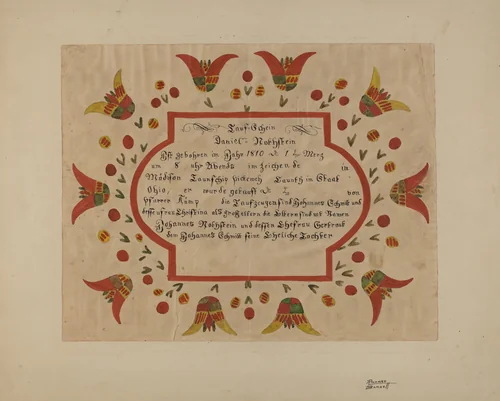 Tauf-Schein
Daniel Rothstein
Ist gebohren im Jahr 1810 1 Merz
um 8 uhr Abends im zeichen de in
Mädison Taunschip pickeny Caunth in Staat
Ohio, er wurde getauft von
Pfarrer Kämp die Taufzeugen sind Johannes Schmit und
Christina als großältern die Eltern sind mit Namen
Johannes Rothstein und dessen Ehefrau Gertraut
dem Johannes Schmit seine Eheliche Tochter